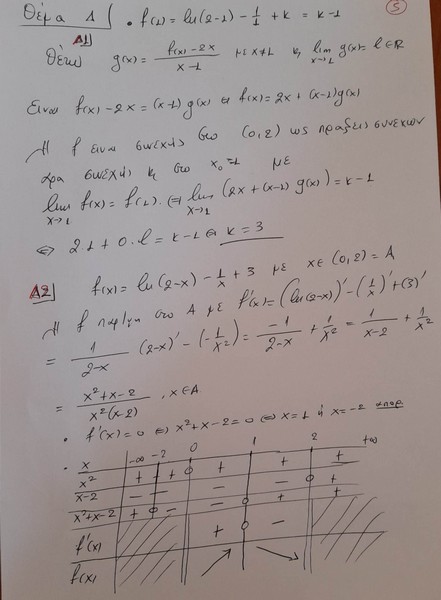 5
Θέμα Δ
• f(1) = ln(2-1) - 1/1 + κ = κ-1
Δ1
Θέτω g(x) = (f(x)-2x)/(x-1) με x≠1 κ lim x→1 g(x) = l ∈ ℝ
Είναι f(x)-2x = (x-1)g(x) ⇔ f(x) = 2x + (x-1)g(x)
Η f είναι συνεχής στο (0,2) ως πράξεις συνεχών
άρα συνεχής κ στο x₀=1 με
lim x→1 f(x) = f(1) ⇔ lim x→1 (2x + (x-1)g(x)) = κ-1
⇔ 2·1 + 0·l = κ-1 ⇔ κ = 3
Δ2 f(x) = ln(2-x) - 1/x + 3 με x∈(0,2) = A
Η f παρ/μη στο A με f'(x) = (ln(2-x))' - (1/x)' + (3)'
= 1/(2-x) (2-x)' - (-1/x²) = -1/(2-x) + 1/x² = 1/(x-2) + 1/x²
= (x²+x-2)/(x²(x-2)), x∈A
• f'(x) = 0 ⇔ x²+x-2 = 0 ⇔ x=1 ή x=-2 απορ
• x -∞ -2 0 1 2 +∞
x² + + 0 + + +
x-2 - - - - 0 +
x²+x-2 + 0 - - 0 + +
f'(x) + 0 -
f(x) ↗ ↘